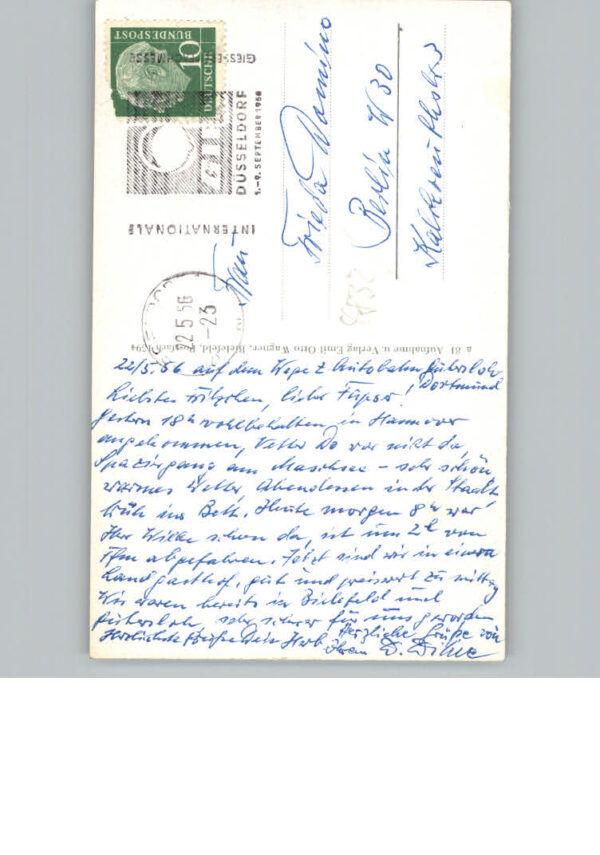 10
DEUTSCHE
BUNDESPOST
INTERNATIONALE
DÜSSELDORF
1.-9. SEPTEMBER 1956
22 5 56
-23
Frau
Frieda Domino
Berlin W 30
a 81 Aufnahme u. Verlag Emil Otto Wagner, Bielefeld, Postfach 1594
22/5.56 auf dem Wege z Autobahn Gütersloh
Dortmund
Liebstes Fritzchen, lieber
Gestern 18h wohlbehalten in Hannover
angekommen, Vetter Do war nicht da,
Spaziergang am Maschsee – sehr schön
warmes Wetter, Abendessen in der Stadt
früh ins Bett. Heute morgen 8h war
Herr Wilke schon da, ist um 2h von
abgefahren. Jetzt sind wir in einem
Landgasthof, gut und preiswert zu mittag
Wir waren bereits in Bielefeld und
Gütersloh, sehr schwer für uns geworden
Herzlichste Grüße Dein Herb
Herzliche Grüße von
Ihrem D. Wilke